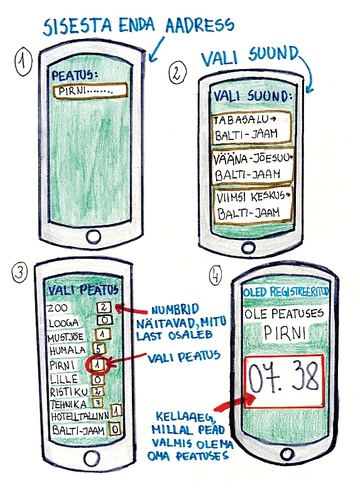 SISESTA ENDA AADRESS
1
PEATUS:
PIRNI........
VALI SUUND
2
VALI SUUND:
TABASALU→
BALTI-JAAM
VÄÄNA-JÕESUU→
BALTI-JAAM
VIIMSI KESKUS→
BALTI-JAAM
3
VALI PEATUS
ZOO 2
LOOGA 0
MUSTJÕE 1
HUMALA 5
PIRNI 1
LILLE 0
RISTIKU 2
TEHNIKA 3
HOTELL TALLINN 1
BALTI-JAAM 0
NUMBRID
NÄITAVAD, MITU
LAST OSALEB
VALI PEATUS
4
OLED REGISTREERITUD
OLE PEATUSES
PIRNI
07.38
KELLAAEG,
MILLAL PEAD
VALMIS OLEMA
OMA PEATUSES